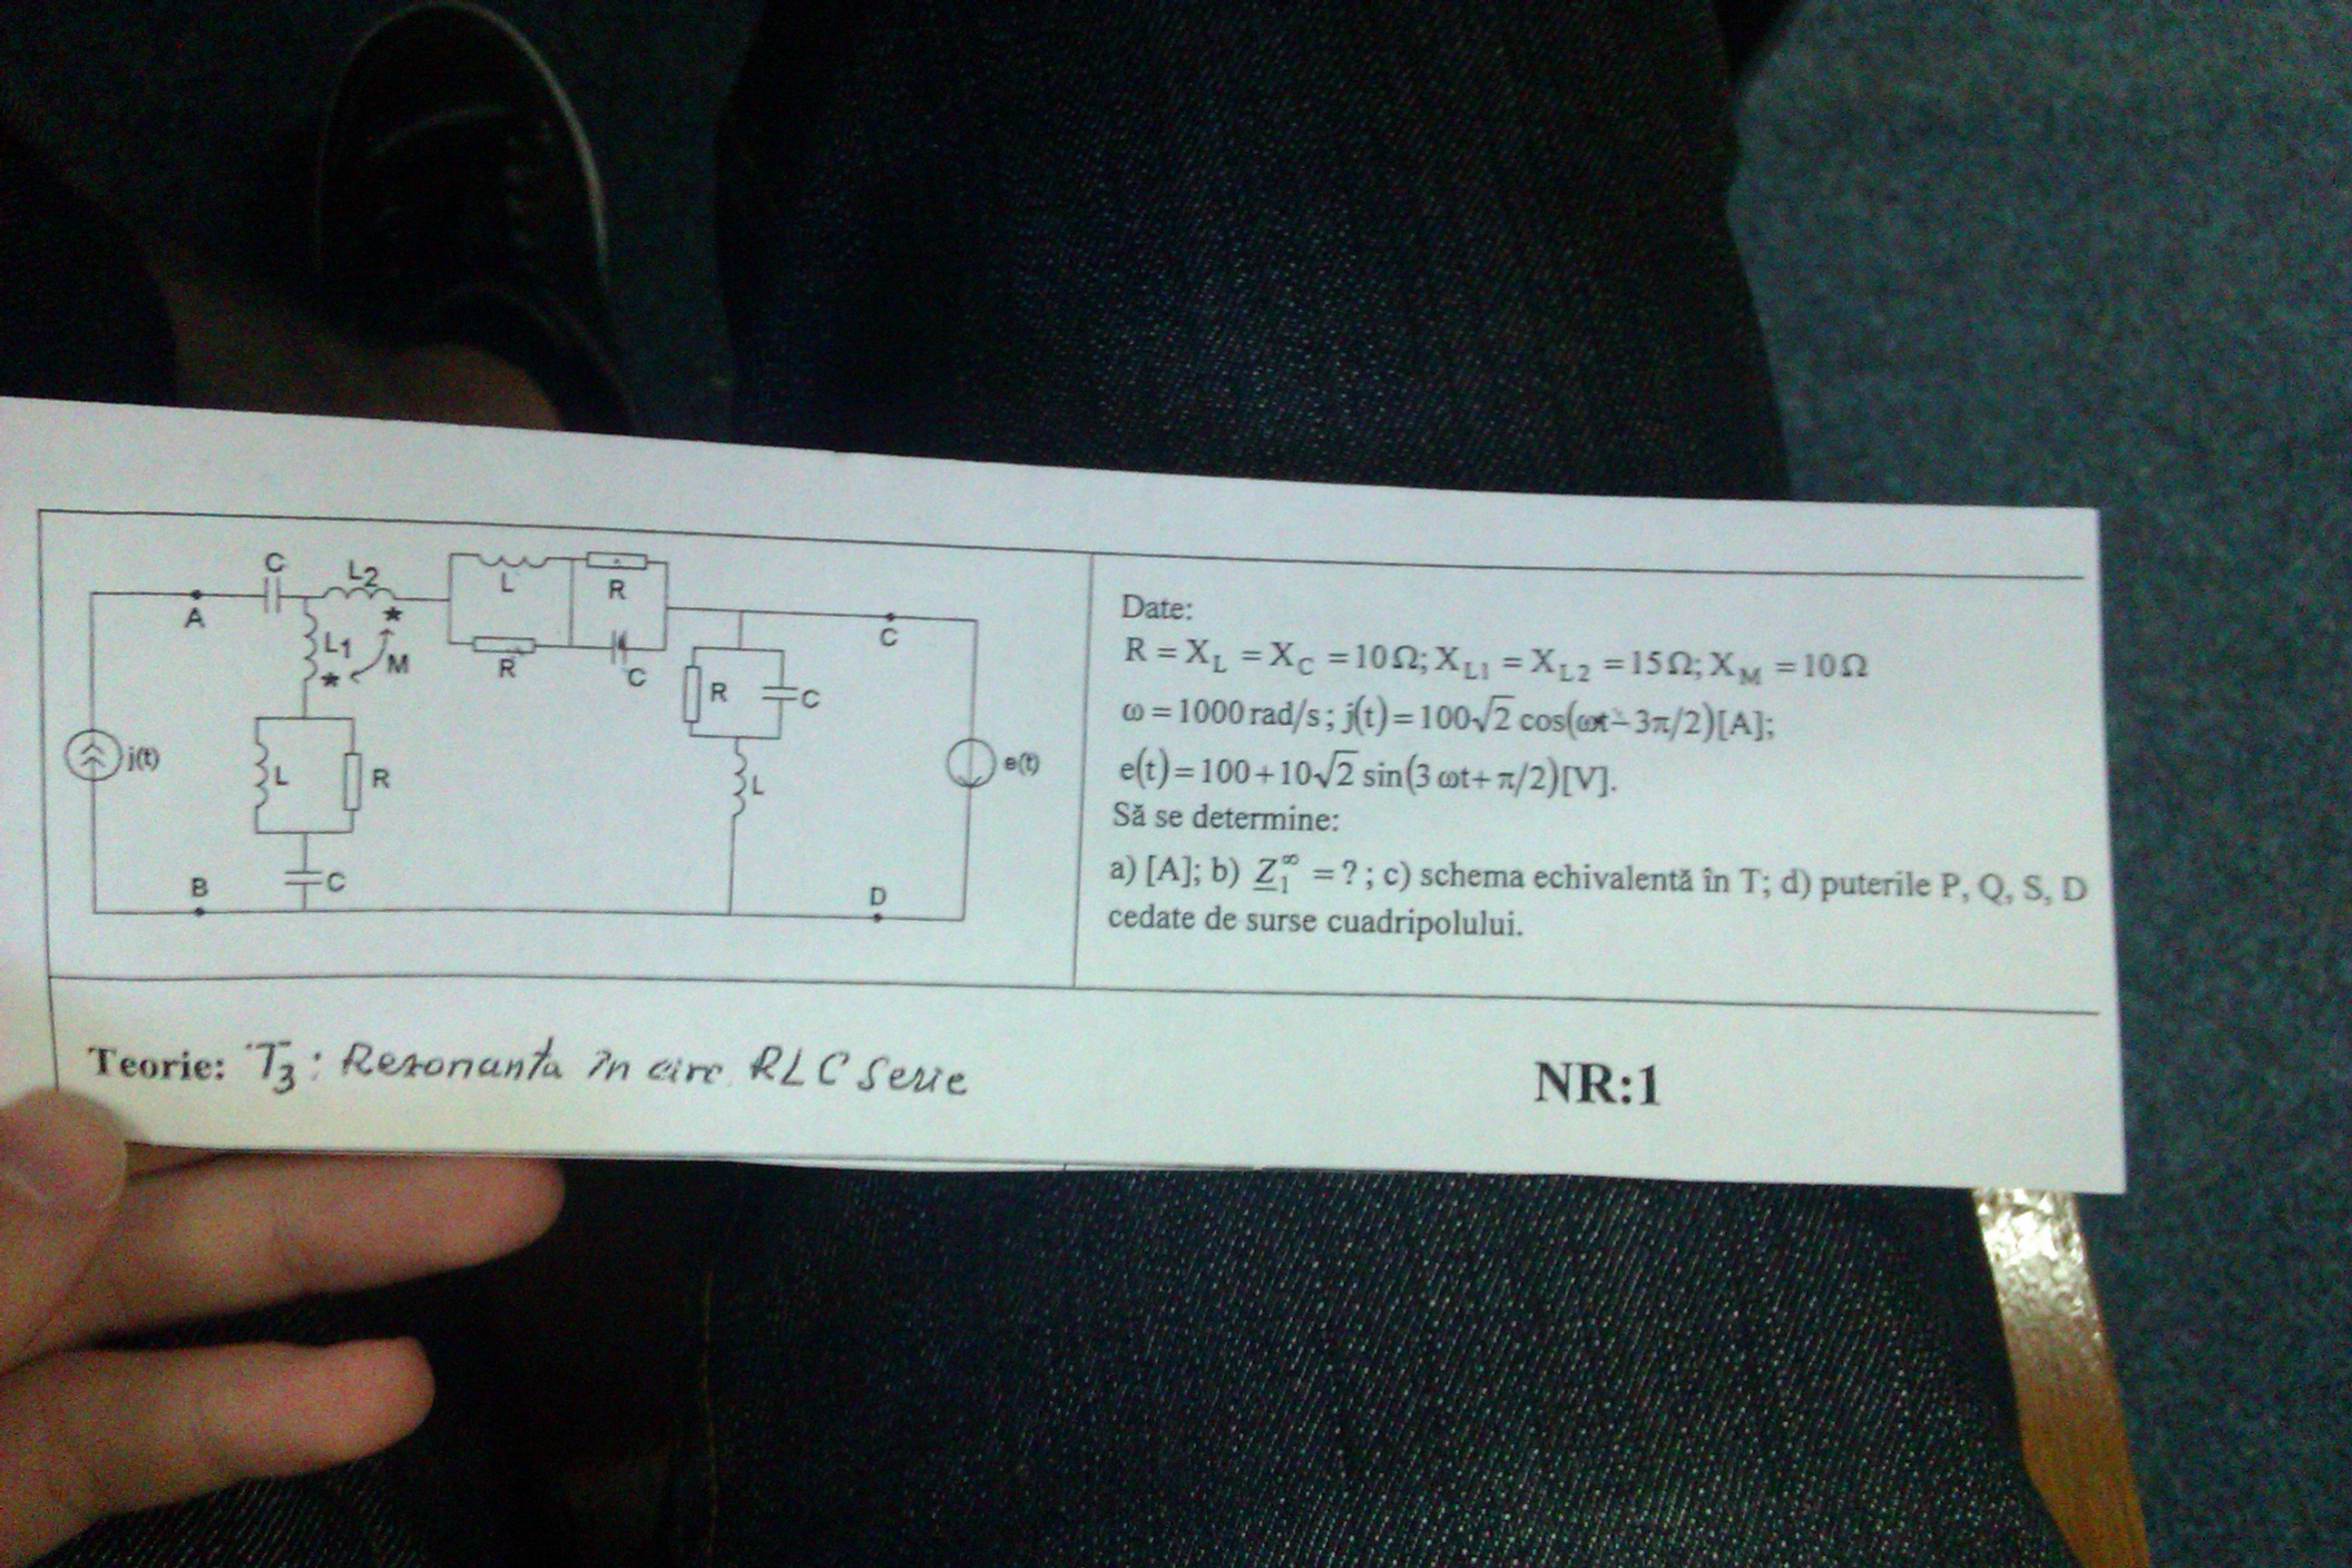 C
L2
L
R
A
L1
M
R
C
C
R
C
j(t)
L
R
L
e(t)
B
C
D
Date:
R = X_L = X_C = 10Ω; X_L1 = X_L2 = 15Ω; X_M = 10Ω
ω = 1000 rad/s; j(t) = 100√2 cos(ωt − 3π/2)[A];
e(t) = 100 + 10√2 sin(3ωt + π/2)[V].
Să se determine:
a) [A]; b) Z₁^∞ = ? ; c) schema echivalentă în T; d) puterile P, Q, S, D
cedate de surse cuadripolului.
Teorie: T3: Rezonanta în circ RLC Serie
NR:1